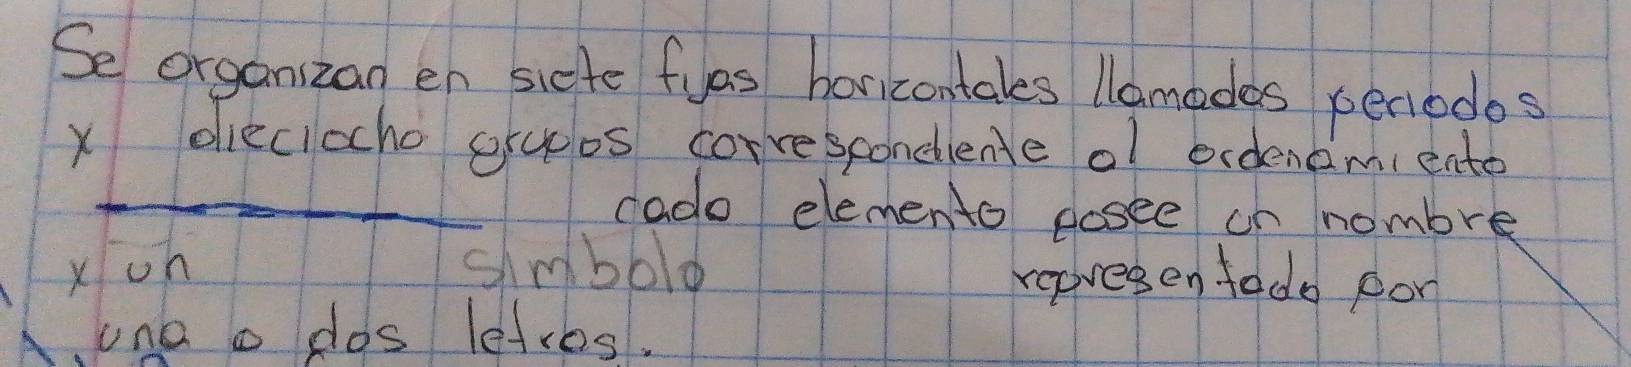 Se organizan en siete fijas horizontales llamados periodos
y dieciocho grupos correspondiente al ordenamiento
cada elemento posee un nombre
y un simbolo representado por
una o dos letras.